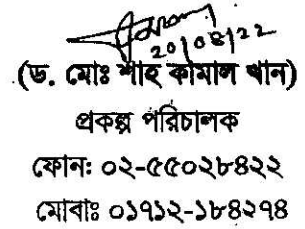 20/04/22
(ড. মোঃ শাহ কামাল খান)
প্রকল্প পরিচালক
ফোনঃ ০২-৫৫০২৮৪২২
মোবাঃ ০১৭১২-১৮৪২৭৪